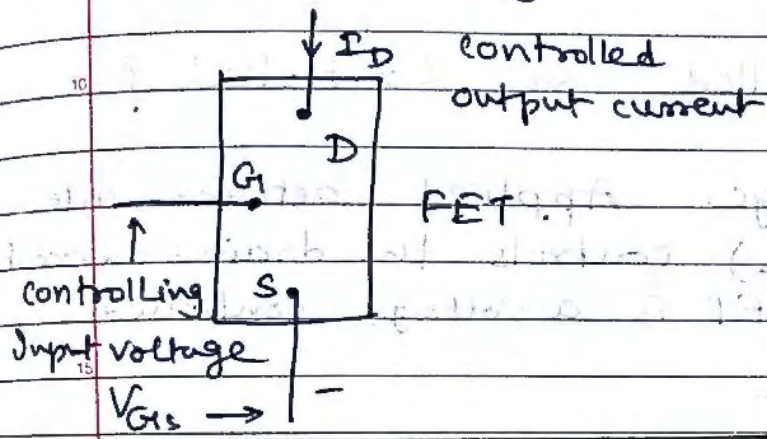 I_D controlled
10
output current
D
G
FET.
controlling S
Input voltage
15
V_GS → -